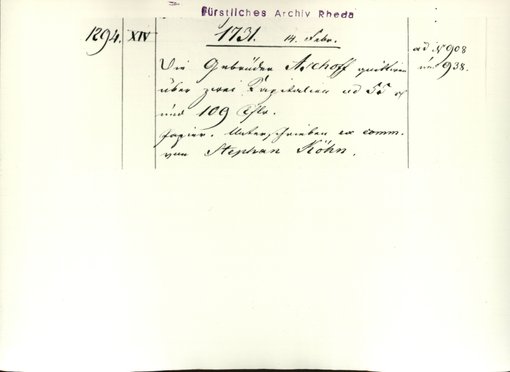 Fürstliches Archiv Rheda
1294. XIV 1731. 14. Febr. ad N 908
Die Gebrüder Aschoff quittiren und 938.
über zwei Kapitalien ad 55
und 109 Thlr.
Papier. Unterschrieben ex comm.
von Stephan Köhn.